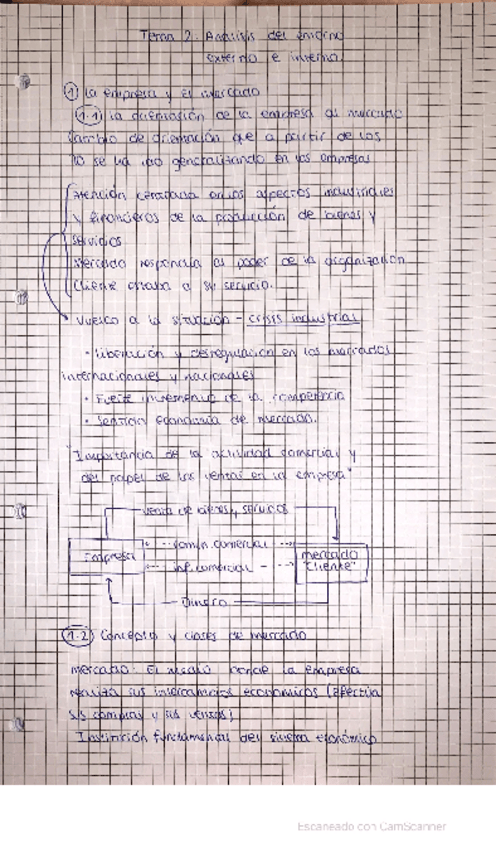 Tema 2. Análisis del entorno
externo e interno.
① La empresa y el mercado
1.1 La orientación de la empresa al mercado
Cambio de orientación que a partir de los
70 se ha ido generalizando en las empresas
Atención centrada en los aspectos industriales
y financieros de la producción de bienes y
servicios
Mercado respondía al poder de la organización
Cliente estaba a su servicio.
Vuelco a la situación - crisis industrias
• Liberación y desregulación en los mercados
internacionales y nacionales
• Fuerte incremento de la competencia
• economía de mercado.
"Importancia de la actividad comercial y
del papel de las ventas en la empresa"
venta de bienes y servicios
Empresa
comun. comercial
mercado
"Cliente"
inf. comercial
Dinero
1.2 Concepto y clases de mercado
mercado: El donde la empresa
realiza sus intercambios económicos (efectúa
sus compras y sus ventas)
Institución fundamental del sistema económico
Escaneado con CamScanner